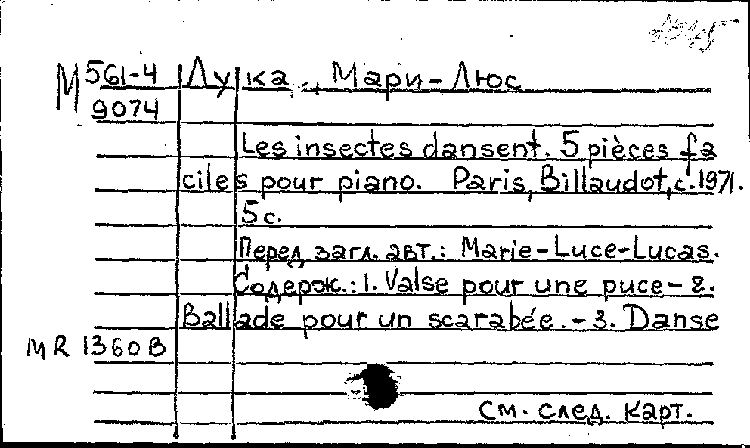 М 561-4 Лука, Мари-Люс
9074
Les insectes dansent. 5 pièces fa
ciles pour piano. Paris, Billaudot, c.1971.
5 с.
Перед загл. авт.: Marie-Luce-Lucas.
Содерж.: 1. Valse pour une puce - 2.
Ballade pour un scarabée. - 3. Danse
MR 1360B
См. след. карт.